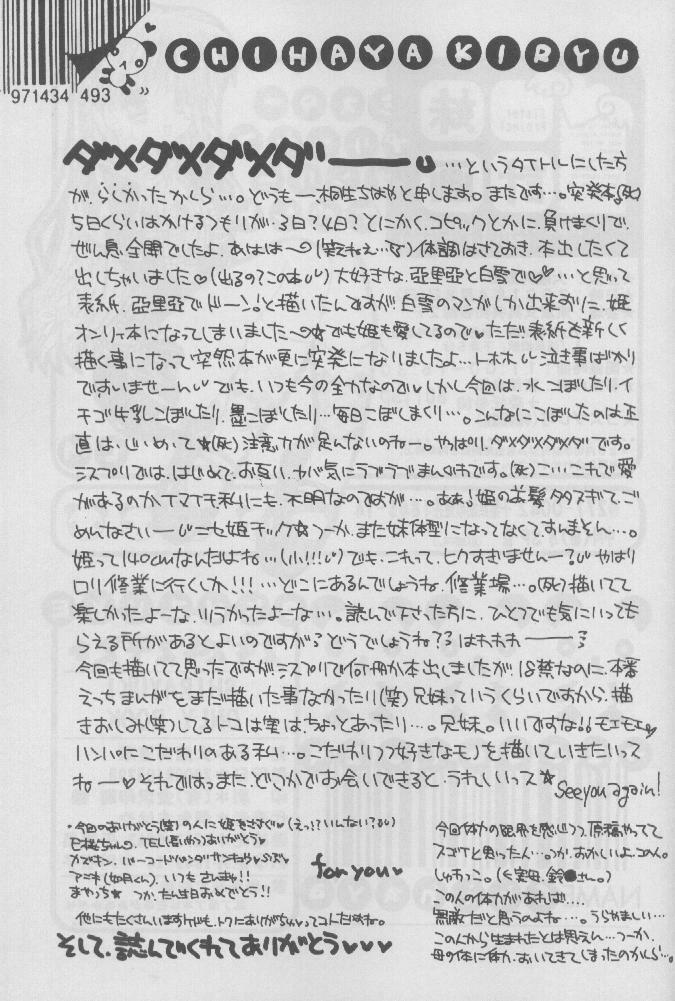 CHIHAYA KIRYU
971434 493
ダメダメダメダ――
…というタイトルにした方
が、らしかったかしら…。どうも一桐生ちはやと申します。またです…。突発本(死)
5日くらいはかけるつもりが、3日?4日?とにかく、コピックとかに、負けまくりで、
ぜん息、全開でしたよ、あはは〜(笑えねぇ…死)体調はさておき、本出したくて
出しちゃいました♡(出るの?この本)大好きな、亞里亞と白雪で♡♡…と思って
表紙、亞里亞でドーン!と描いたんですが白雪のマンガしか出来ずに、姫
オンリー本になってしまいました〜☆でも姫も愛してるので♥ただ表紙を新しく
描く事になって突然本が更に突発になりましたよ…トホホ 泣き事ばかり
ですいませーん でも、いつも今の全力なので♥しかし今回は、水こぼしたり、イ
チゴ牛乳こぼしたり、墨こぼしたり…毎日こぼしまくり…。こんなにこぼしたのは正
直は、じめて★(死)注意力が足んないのねー。やっぱり、ダメダメダメダです。
ミスプリでは、はじめて、お互い、ヤバ気にラブラブまんがです。(死)こ…これで愛
があるのか、イマイチ、私にも、不明なのですが…。ああ!姫のお髪タクスギて、ご
めんなさいー ニセ姫チック☆つーか、また妹体型になってなくてすいません…。
姫って140cmなんだよね…(小!!!)でも、これって、ヒクすぎいませんー? やはり
ロリ修業に行くしか!!!…どこにあるんでしょうね、修業場…。(死)描いてて
楽しかったよーな、ツラかったよーな…。読んで下さった方に、ひとつでも気にいっても
らえる所があるとよいのですが?どうでしょうね??はわわわ――
今回も描いてて思ったですがミスプリで何冊か本出しましたが、18禁なのに、本番
えっちまんがをまだ描いた事なかったり(笑)兄妹っていうくらいですから、描
きおしみ(笑)してるトコは実は、ちょっとあったり…。兄妹。いいですな!!モエモエ♥
ハンパにこだわりのある私…。こだわりつつ好きなモノを描いていきたいっス
ねー♥それではっまた、どこかでお会いできると、うれしいっス☆
See you again!
・今回のありがとう(笑)の人に姫をきさぐ♥(えっ!?いんない?)
ありがとう♥
カズキン、バーコード
アニキ(如月くん)、いつも
まやっち★ つか、たん生日おめでとう!!
for you♥
他にもたくさんいますけども、トクにありがちゅってコトだよね。
そして、読んでくれてありがとう♥♥♥
今回体力の限界を感じつつ、原稿やってて
スゴイと思った人…。つか、おかしいよ、この人。
しゅわっこ。(実母、鈴●さん。)
この人の体力があれば….
無敵だと思うのよね…。うらやましい…
この人から生まれたとは思えん…つーか、
母の体に体力、おいてきてしまったのかしら…。